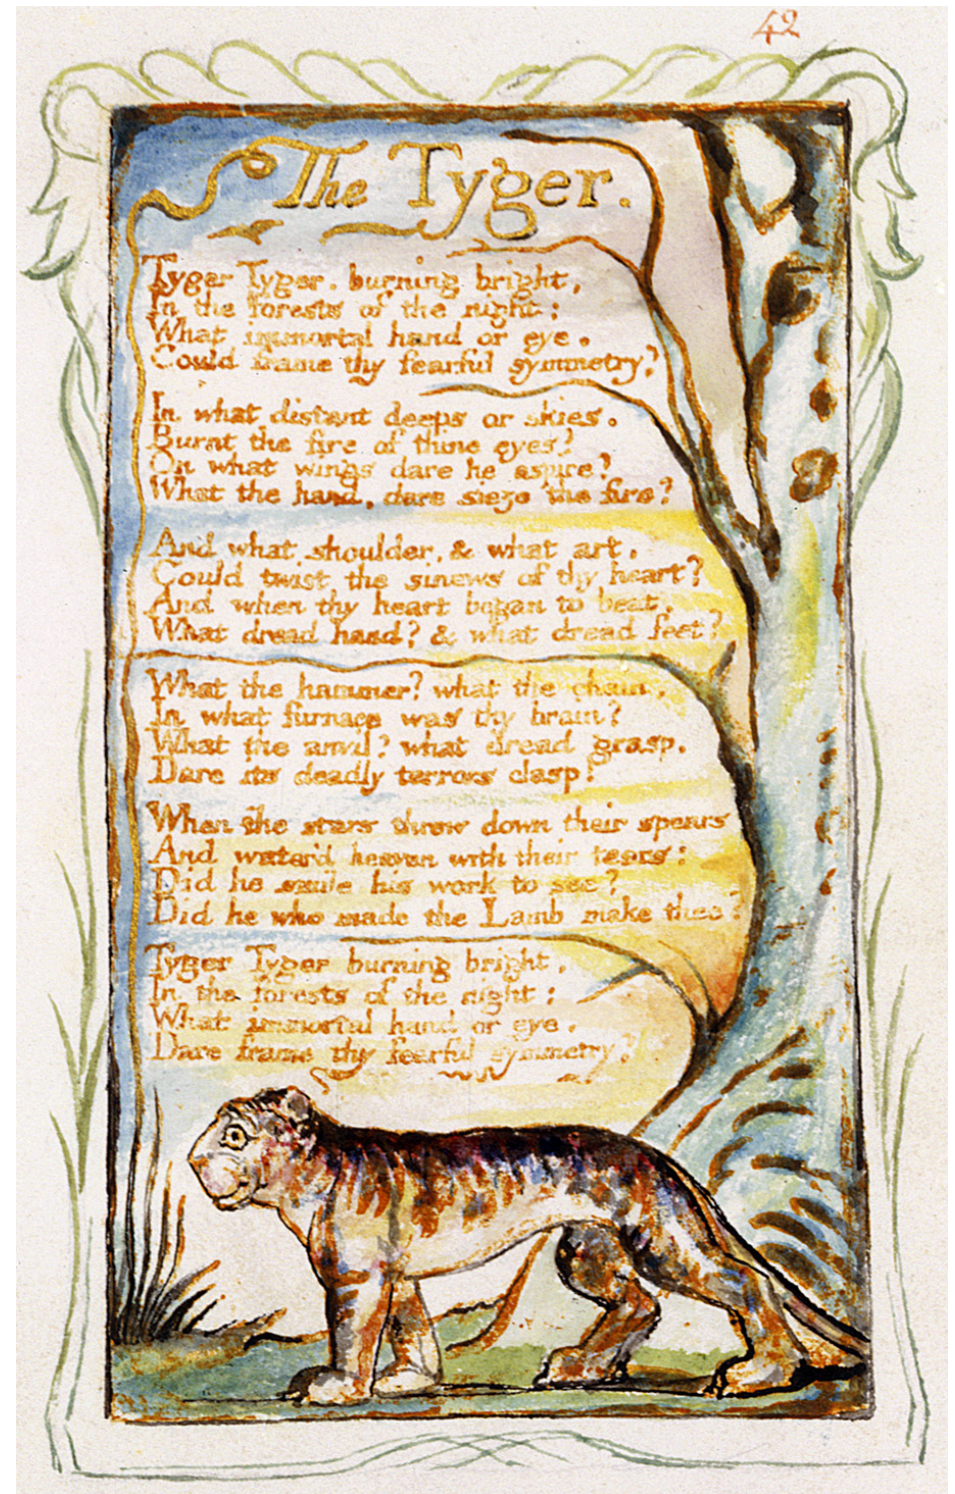 42
The Tyger.
Tyger Tyger. burning bright,
In the forests of the night;
What immortal hand or eye.
Could frame thy fearful symmetry?
In what distant deeps or skies.
Burnt the fire of thine eyes?
On what wings dare he aspire?
What the hand, dare sieze the fire?
And what shoulder, & what art,
Could twist the sinews of thy heart?
And when thy heart began to beat,
What dread hand? & what dread feet?
What the hammer? what the chain,
In what furnace was thy brain?
What the anvil? what dread grasp.
Dare its deadly terrors clasp!
When the stars threw down their spears
And water'd heaven with their tears:
Did he smile his work to see?
Did he who made the Lamb make thee?
Tyger Tyger burning bright,
In the forests of the night:
What immortal hand or eye.
Dare frame thy fearful symmetry?